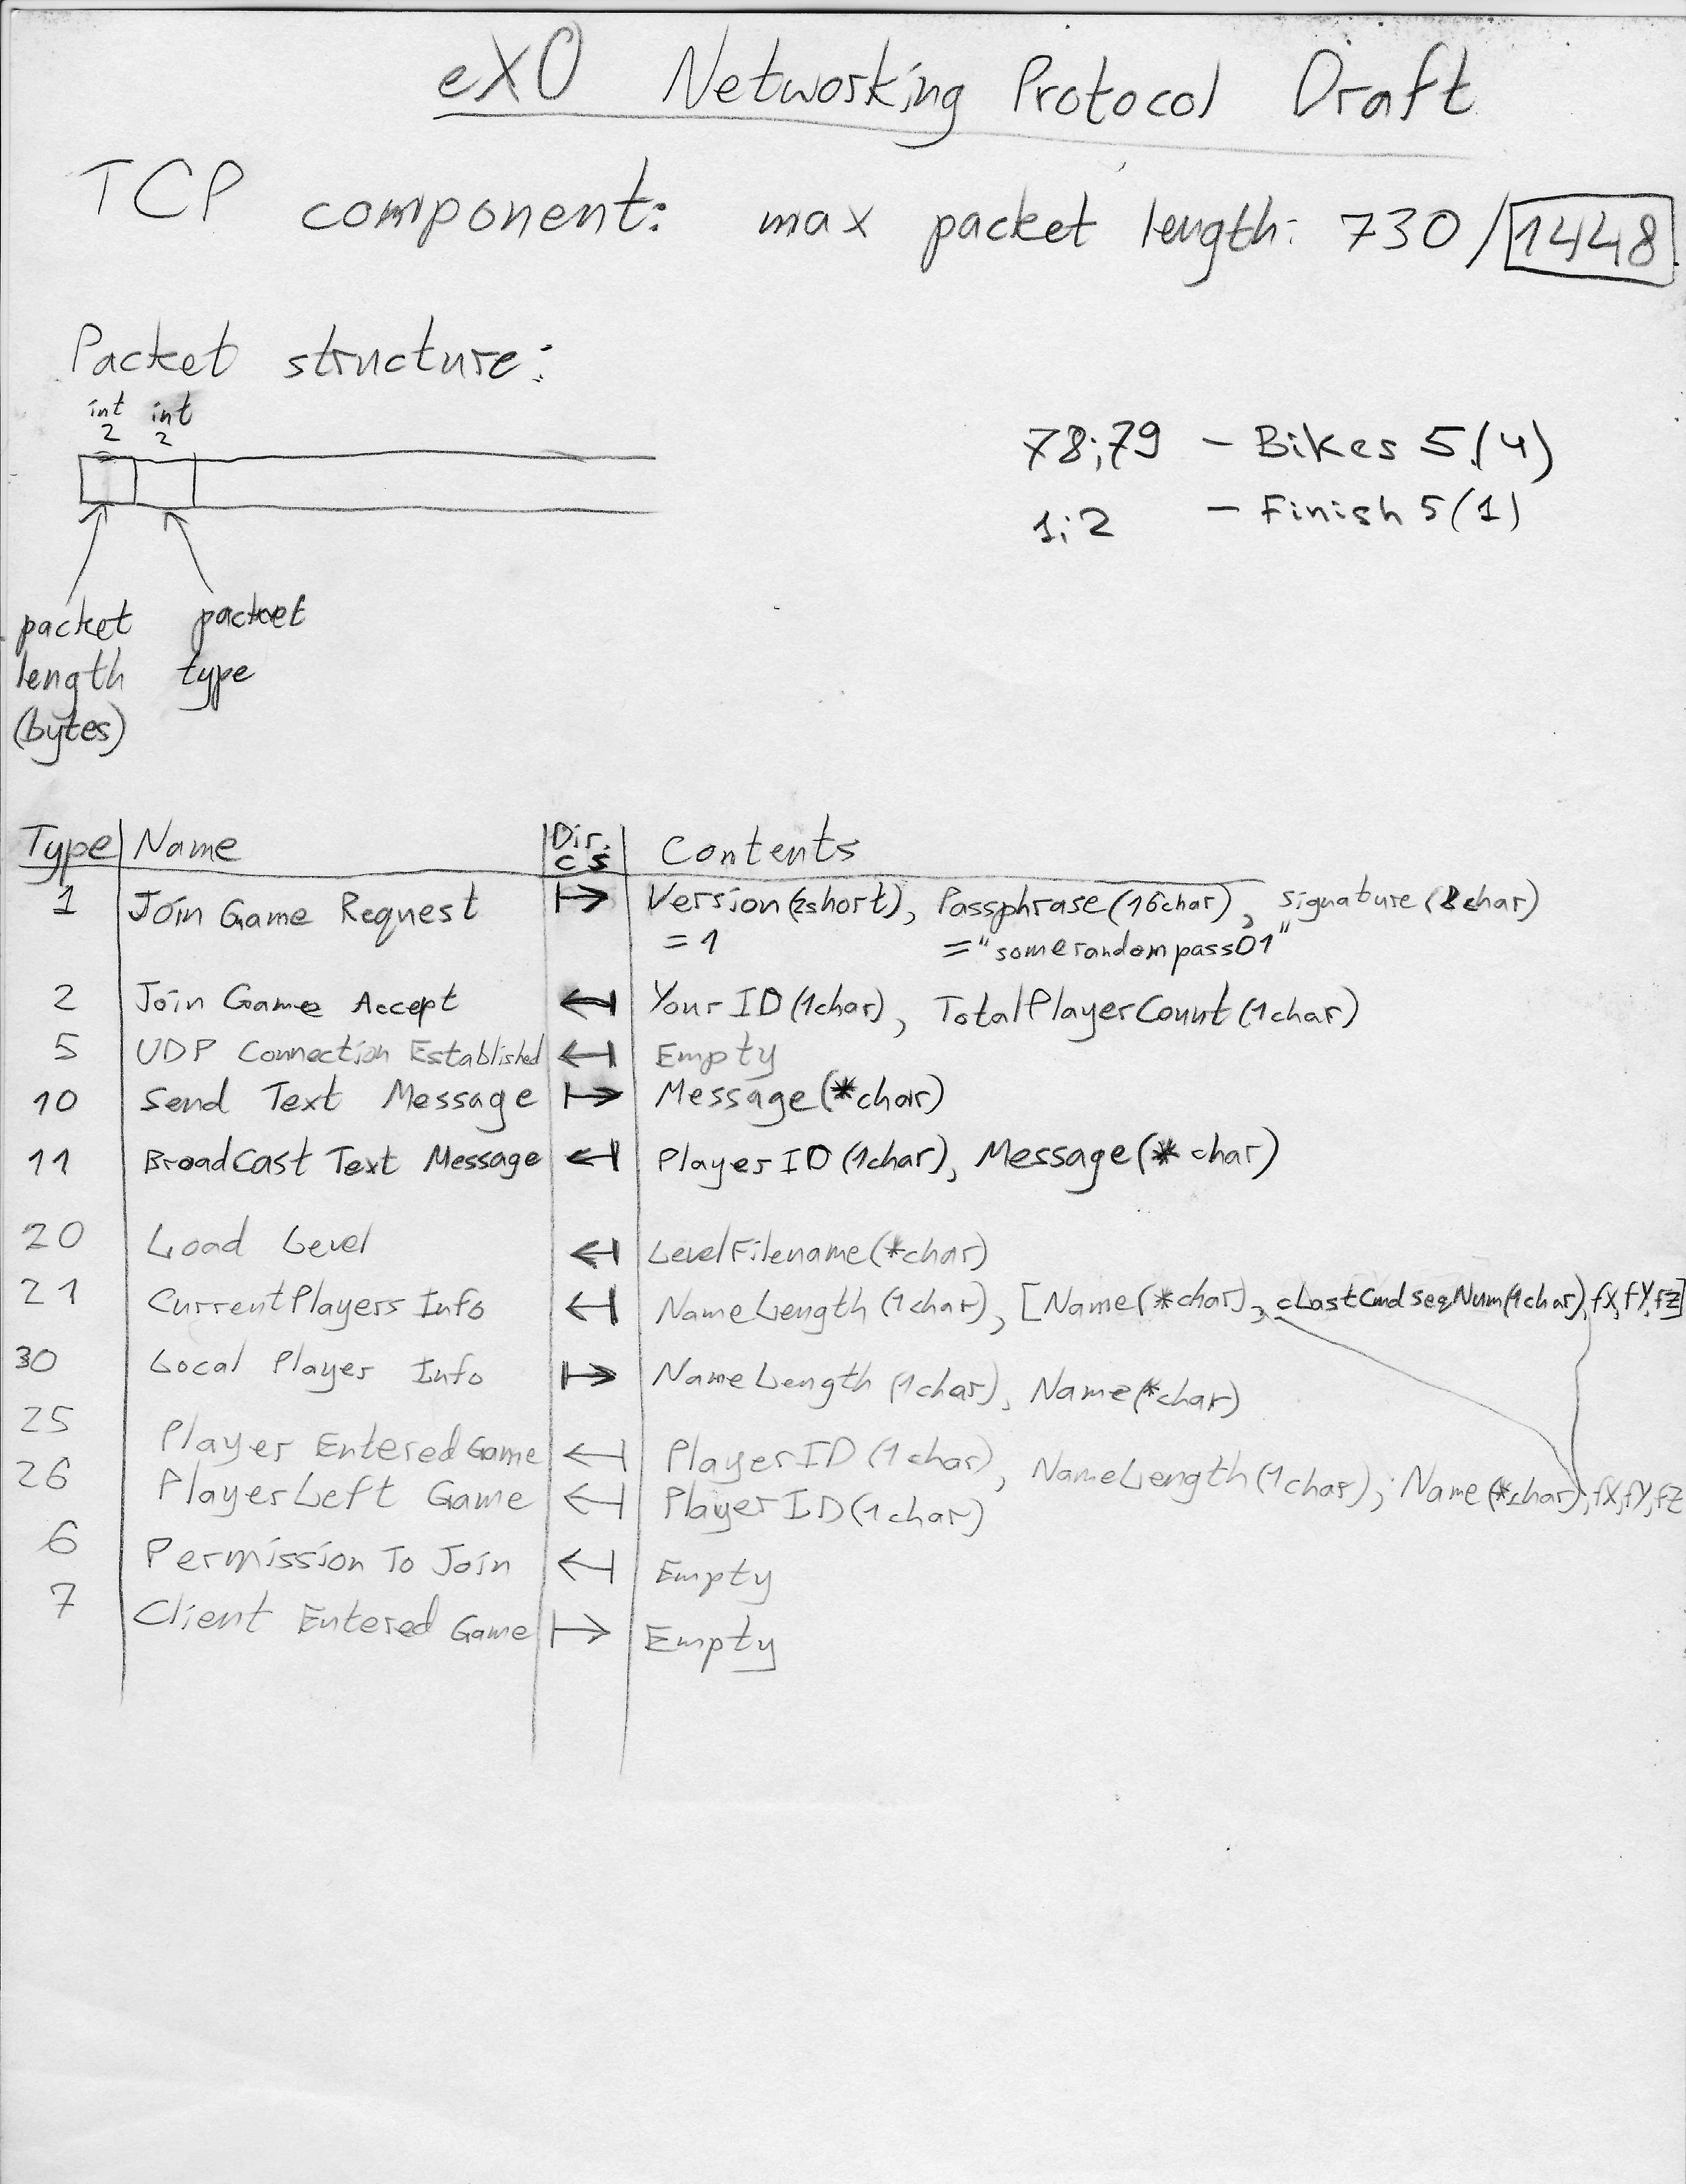 eX0 Networking Protocol Draft
TCP component: max packet length: 730/1448
Packet structure:
int int
2 2
78;79 - Bikes 5(4)
1;2 - Finish 5(1)
packet packet
length type
(bytes)
Type Name Dir. Contents
C S
1 Join Game Request ↦ Version(2short), Passphrase(16char), signature(8char)
=1 ="somerandompass01"
2 Join Game Accept ↤ Your ID(1char), TotalPlayerCount(1char)
5 UDP Connection Established ↤ Empty
10 Send Text Message ↦ Message(*char)
11 BroadCast Text Message ↤ Player ID(1char), Message(*char)
20 Load Level ↤ LevelFilename(*char)
21 CurrentPlayers Info ↤ NameLength(1char), [Name(*char), cLastCmdSeqNum(1char), fX,fY,fZ]
30 Local Player Info ↦ NameLength(1char), Name(*char)
25 Player Entered Game ↤ PlayerID(1char), NameLength(1char), Name(*char), fX,fY,fZ
26 PlayerLeft Game ↤ PlayerID(1char)
6 Permission To Join ↤ Empty
7 Client Entered Game ↦ Empty